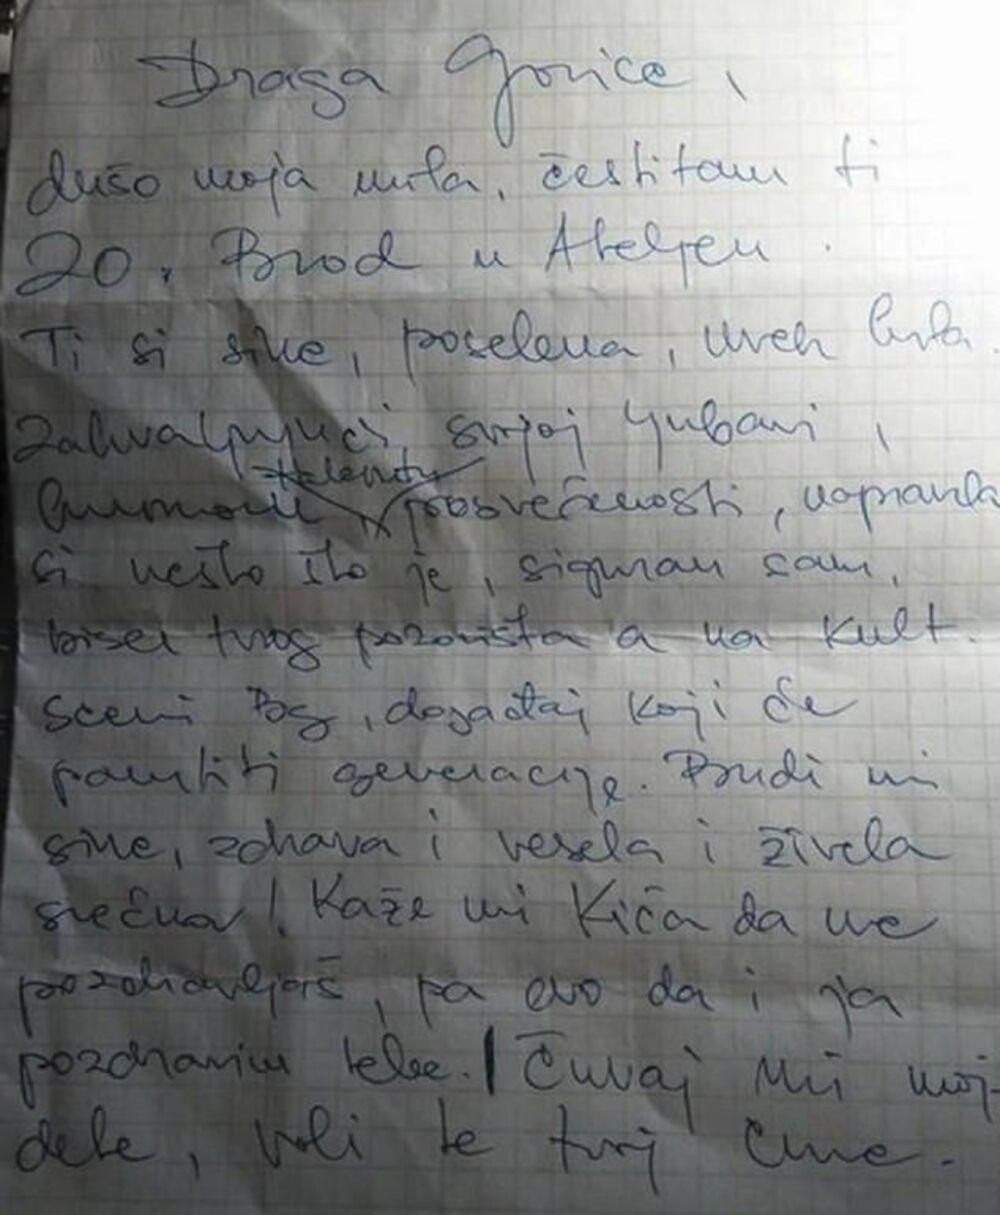 Draga Gorice,
dušo moja mila, čestitam ti
20. Brod u Ateljeu.
Ti si sine, poselena, uvek bila.
Zahvaljujući svojoj ljubavi,
talentu
posvećenosti, napravila
si nešto što je, siguran sam,
biser tvog pozorišta a na kult.
sceni Bg, događaj koji će
pamtiti generacije. Budi mi
sine, zdrava i vesela i živela
srećna! Kaže mi Kiča da me
pozdravljaš, pa evo da i ja
pozdravim tebe. Čuvaj mi moj
dete, voli te tvoj Čme.